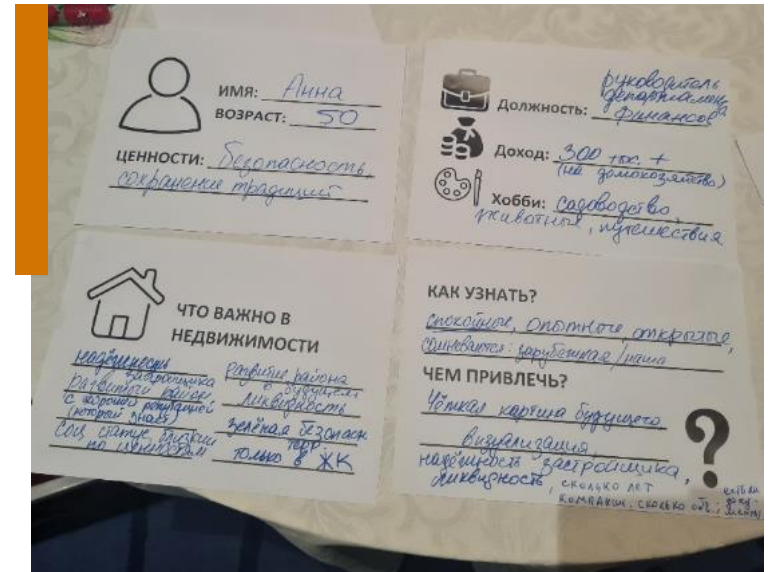 ИМЯ: Анна
ВОЗРАСТ: 50
ЦЕННОСТИ: Безопасность,
сохранение традиций
руководитель
департамента
Должность: финансов
Доход: 300 тыс. +
(на домохозяйство)
Хобби: Садоводство,
животные, путешествия
ЧТО ВАЖНО В
НЕДВИЖИМОСТИ
надёжность
застройщика
развитый район,
с хорошей репутацией
(который знает)
Соц. статус, близкий
по ценностям
развитие района
в будущем
ликвидность
зелёная безопасн
терр
только в ЖК
КАК УЗНАТЬ?
спокойные, опытные открытые,
сомневается: зарубежная/наша
ЧЕМ ПРИВЛЕЧЬ?
Чёткая картина будущего
визуализация,
надёжность застройщика,
ликвидность, сколько лет
компании, сколько об.;
есть ли
доку-
менты
?